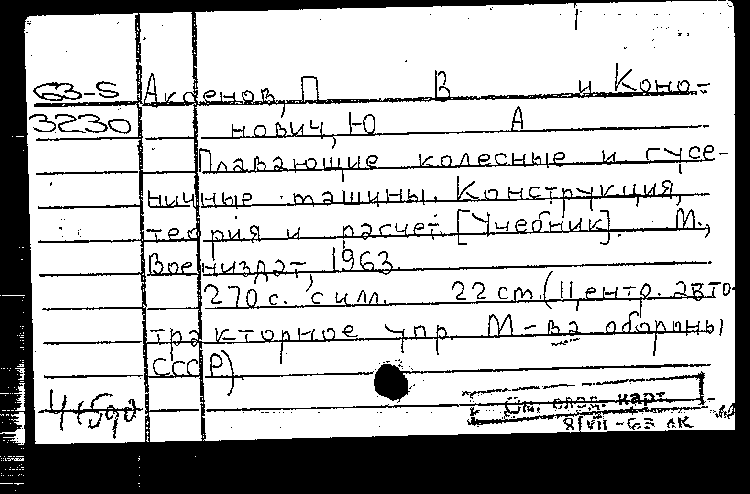 63-5 Аксенов, П В и Коно-
3230 нович, Ю А
Плавающие колесные и гусе-
ничные машины. Конструкция,
теория и расчет. [Учебник]. М.,
Воениздат, 1963.
270 с. с илл. 22 см. (Центр. авто-
тракторное упр. М-ва обороны
СССР)
См. след. карт.
8/VII-63